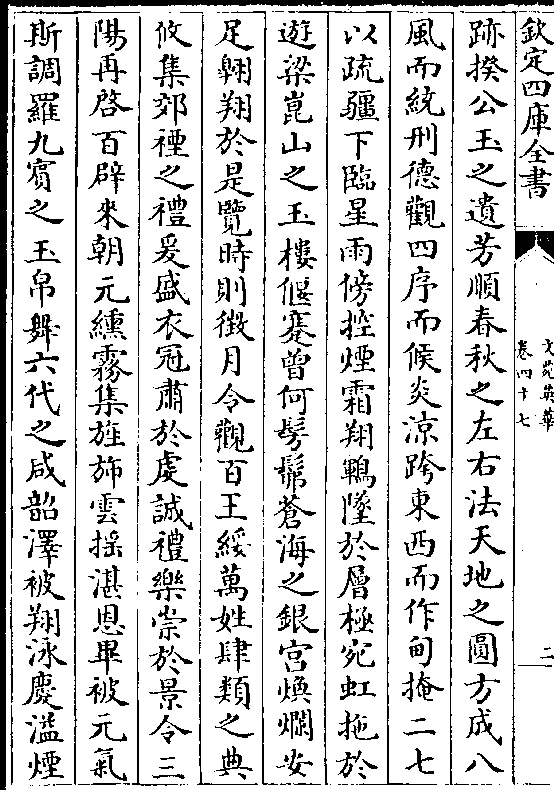 欽定四庫全書
文苑英華
卷四十七
二
跡揆公玉之遺芳順春秋之左右法天地之圓方成八
風而統刑德觀四序而候炎涼跨東西而作甸掩二七
以疏疆下臨星雨傍控煙霜翔鶤墜於層極宛虹拖於
遊梁崑山之玉樓偃蹇曾何髣髴蒼海之銀宮煥爛安
足翱翔於是覽時則徴月令觀百王綏萬姓肆類之典
攸集郊禋之禮爰盛衣冠肅於虔誠禮樂崇於景令三
陽再啓百辟來朝元纁霧集旌斾雲揺湛恩畢被元氣
斯調羅九賔之玉帛舞六代之咸韶澤被翔泳慶溢煙